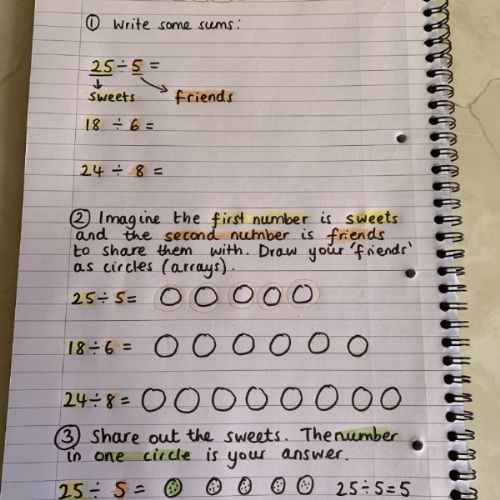 ① Write some sums:
25 ÷ 5 =
sweets friends
18 ÷ 6 =
24 ÷ 8 =
② Imagine the first number is sweets
and the second number is friends
to share them with. Draw your 'friends'
as circles (arrays).
25 ÷ 5 =
18 ÷ 6 =
24 ÷ 8 =
③ Share out the sweets. The number
in one circle is your answer.
25 ÷ 5 = 25 ÷ 5 = 5